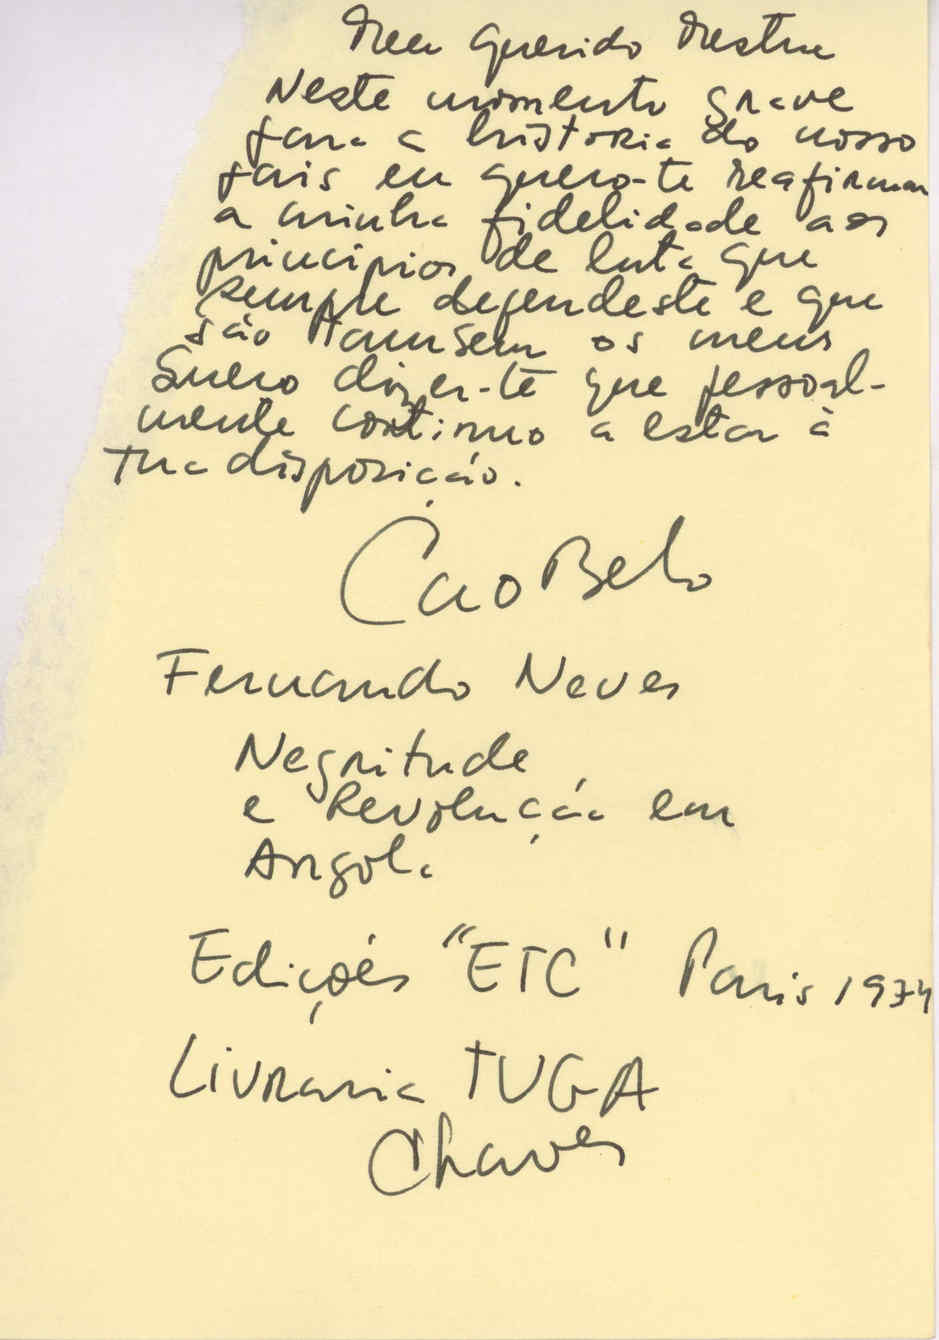 Meu Querido Mestre
Neste momento grave
para a história do nosso
país eu quero-te reafirmar
a minha fidelidade aos
princípios de luta que
sempre defendeste e que
são tambem os meus
Quero dizer-te que pessoal-
mente continuo a estar à
tua disposição.
Cão Belo
Fernando Neves
Negritude
e Revolução em
Angola
Edições "ETC" Paris 1974
Livraria TUGA
Chaves